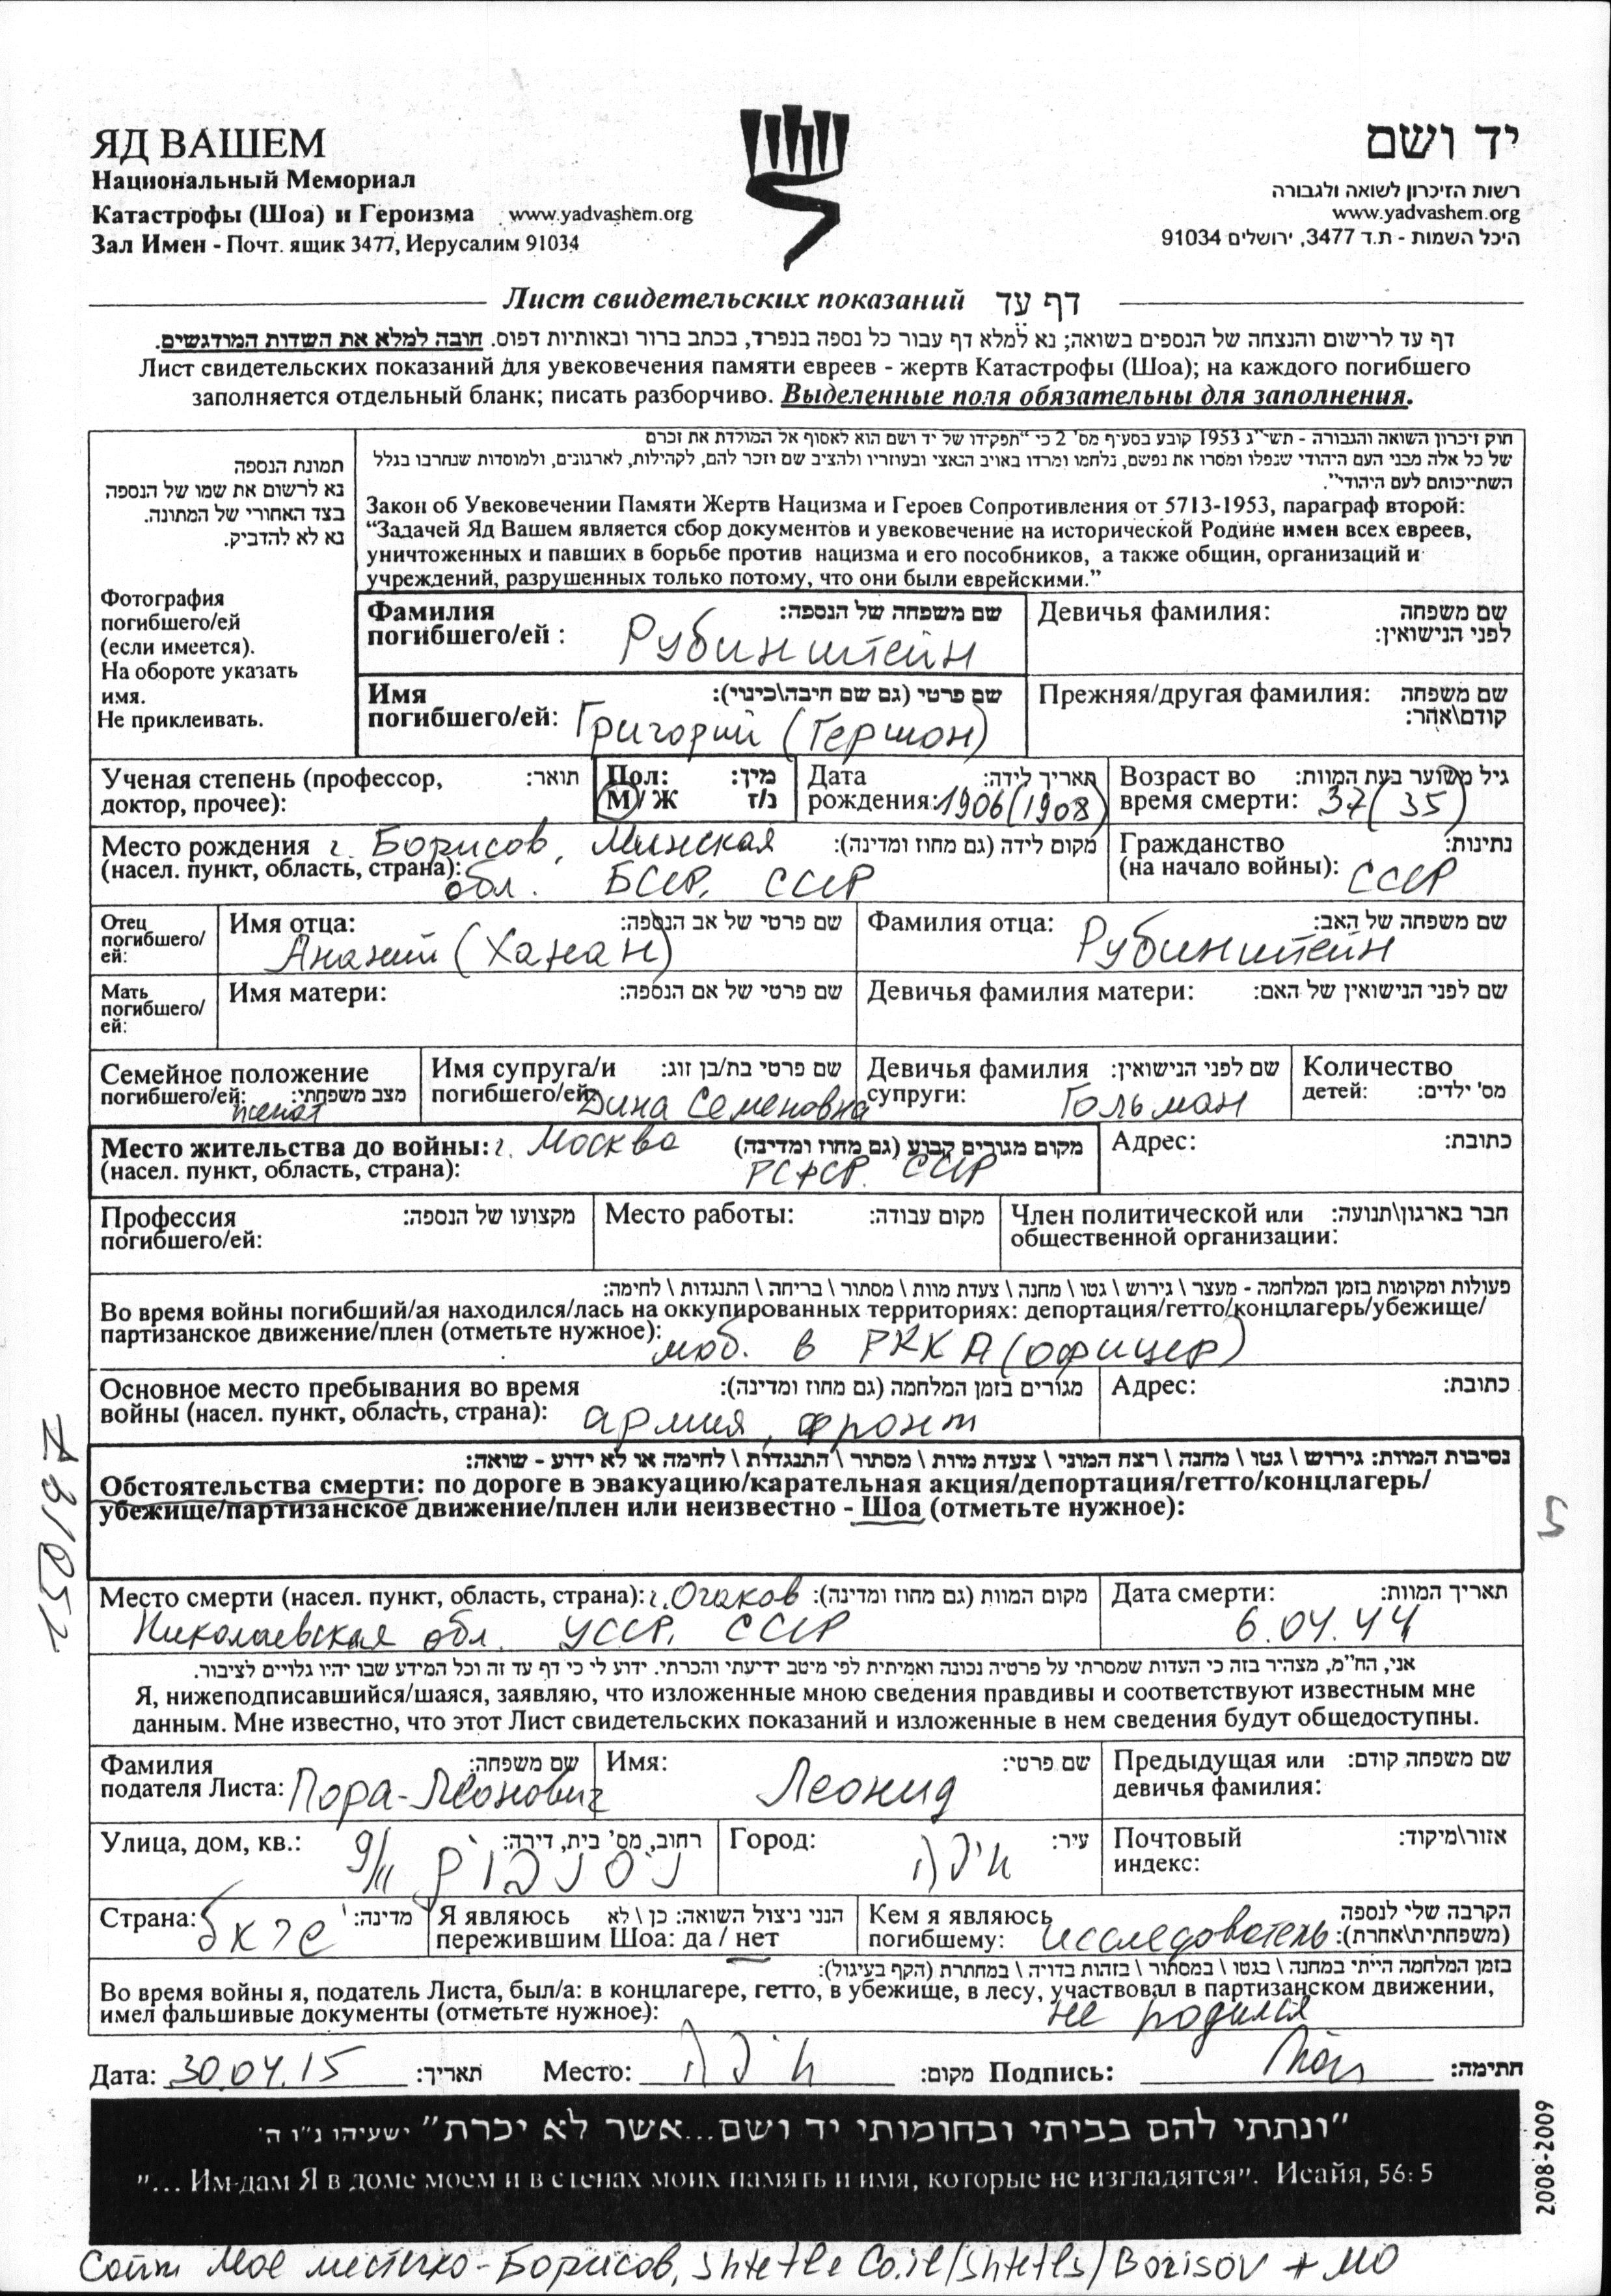 ЯД ВАШЕМ
Национальный Мемориал
Катастрофы (Шоа) и Героизма www.yadvashem.org
Зал Имен - Почт. ящик 3477, Иерусалим 91034
יד ושם
רשות הזיכרון לשואה ולגבורה
www.yadvashem.org
היכל השמות - ת.ד 3477, ירושלים 91034
Лист свидетельских показаний דף עד
דף עד לרישום והנצחה של הנספים בשואה; נא למלא דף עבור כל נספה בנפרד, בכתב ברור ובאותיות דפוס. חובה למלא את השדות המודגשים.
Лист свидетельских показаний для увековечения памяти евреев - жертв Катастрофы (Шоа); на каждого погибшего
заполняется отдельный бланк; писать разборчиво. Выделенные поля обязательны для заполнения.
תמונת הנספה
נא לרשום את שמו של הנספה
בצד האחורי של התמונה.
נא לא להדביק.
Фотография
погибшего/ей
(если имеется).
На обороте указать
имя.
Не приклеивать.
חוק זיכרון השואה והגבורה - תשי"ג 1953 קובע בסעיף מס' 2 כי "תפקידו של יד ושם הוא לאסוף אל המולדת את זכרם
של כל אלה מבני העם היהודי שנפלו ומסרו את נפשם, נלחמו ומרדו באויב הנאצי ובעוזריו ולהציב שם וזכר להם, לקהילות, לארגונים, ולמוסדות שנחרבו בגלל
השתייכותם לעם היהודי".
Закон об Увековечении Памяти Жертв Нацизма и Героев Сопротивления от 5713-1953, параграф второй:
“Задачей Яд Вашем является сбор документов и увековечение на исторической Родине имен всех евреев,
уничтоженных и павших в борьбе против нацизма и его пособников, а также общин, организаций и
учреждений, разрушенных только потому, что они были еврейскими.”
Фамилия שם משפחה של הנספה:
погибшего/ей : Рубинштейн
Девичья фамилия: שם משפחה
לפני הנישואין:
Имя שם פרטי (גם שם חיבה\כינוי):
погибшего/ей: Григорий (Гершон)
Прежняя/другая фамилия: שם משפחה
קודם\אחר:
Ученая степень (профессор, תואר:
доктор, прочее):
Пол: מין:
М / Ж ז/נ
Дата תאריך לידה:
рождения: 1906 (1908)
Возраст во גיל משוער בעת המוות:
время смерти: 37 (35)
Место рождения г. Борисов, Минская מקום לידה (גם מחוז ומדינה):
(насел. пункт, область, страна): обл. БССР, СССР
Гражданство נתינות:
(на начало войны): СССР
Отец
погибшего/
ей:
Имя отца: שם פרטי של אב הנספה:
Ананий (Ханан)
Фамилия отца: שם משפחה של האב:
Рубинштейн
Мать
погибшего/
ей:
Имя матери: שם פרטי של אם הנספה:
Девичья фамилия матери: שם לפני הנישואין של האם:
Семейное положение
погибшего/ей: מצב משפחתי:
женат
Имя супруга/и שם פרטי בת/בן זוג:
погибшего/ей: Дина Семеновна
Девичья фамилия שם לפני הנישואין:
супруги: Гольман
Количество
детей: מס' ילדים:
Место жительства до войны: г. Москва מקום מגורים קבוע (גם מחוז ומדינה)
(насел. пункт, область, страна): РСФСР. СССР
Адрес: כתובת:
Профессия מקצועו של הנספה:
погибшего/ей:
Место работы: מקום עבודה:
Член политической или חבר בארגון\תנועה:
общественной организации:
פעולות ומקומות בזמן המלחמה - מעצר \ גירוש \ גטו \ מחנה \ צעדת מוות \ מסתור \ בריחה \ התנגדות \ לחימה:
Во время войны погибший/ая находился/лась на оккупированных территориях: депортация/гетто/концлагерь/убежище/
партизанское движение/плен (отметьте нужное): моб. в РККА (офицер)
Основное место пребывания во время מגורים בזמן המלחמה (גם מחוז ומדינה):
войны (насел. пункт, область, страна): армия, фронт
Адрес: כתובת:
נסיבות המוות: גירוש \ גטו \ מחנה \ רצח המוני \ צעדת מוות \ מסתור \ התנגדות \ לחימה או לא ידוע - שואה:
Обстоятельства смерти: по дороге в эвакуацию/карательная акция/депортация/гетто/концлагерь/
убежище/партизанское движение/плен или неизвестно - Шоа (отметьте нужное):
5
Место смерти (насел. пункт, область, страна): г. Очаков מקום המוות (גם מחוז ומדינה):
Николаевская обл. УССР, СССР
Дата смерти: תאריך המוות:
6.04.44
אני, הח"מ, מצהיר בזה כי העדות שמסרתי על פרטיה נכונה ואמיתית לפי מיטב ידיעתי והכרתי. ידוע לי כי דף עד זה וכל המידע שבו יהיו גלויים לציבור.
Я, нижеподписавшийся/шаяся, заявляю, что изложенные мною сведения правдивы и соответствуют известным мне
данным. Мне известно, что этот Лист свидетельских показаний и изложенные в нем сведения будут общедоступны.
Фамилия שם משפחה:
подателя Листа: Пора-Леонович
Имя: שם פרטי:
Леонид
Предыдущая или שם משפחה קודם:
девичья фамилия:
Улица, дом, кв.: רחוב, מס' בית, דירה:
9/11
Город: עיר:
חיפה
Почтовый אזור\מיקוד:
индекс:
Страна: מדינה:
Я являюсь הנני ניצול השואה: כן \ לא
пережившим Шоа: да / нет
Кем я являюсь הקרבה שלי לנספה
погибшему: исследователь (משפחתית\אחרת):
בזמן המלחמה הייתי במחנה \ בגטו \ במסתור \ בזהות בדויה \ במחתרת (הקף בעיגול):
Во время войны я, податель Листа, был/а: в концлагере, гетто, в убежище, в лесу, участвовал в партизанском движении,
имел фальшивые документы (отметьте нужное): не родился
Дата: 30.04.15 תאריך: Место: חיפה מקום: Подпись: חתימה:
"ונתתי להם בביתי ובחומותי יד ושם...אשר לא יכרת" ישעיהו נ"ו ה'
"... Им-дам Я в доме моем и в стенах моих память и имя, которые не изгладятся". Исайя, 56: 5
2008-2009
Сайт Мое местечко - Борисов, shtetle Co.il/shtetls/Borisov + МО